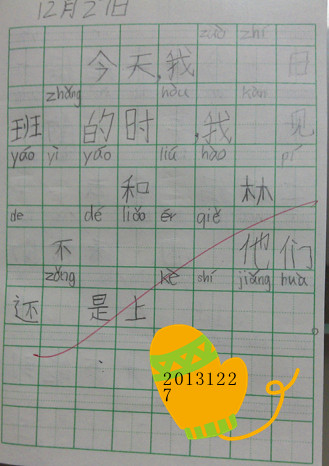 12月27日
zuò zhí
今天,我 日
zhǎng hòu kàn
班 的时,我 见
yáo yì yáo liú hào pí
和 林
de dé liǎo ér qiě
不 他们
zǒng kè shí jiǎng huà
还 是上
2013122
7